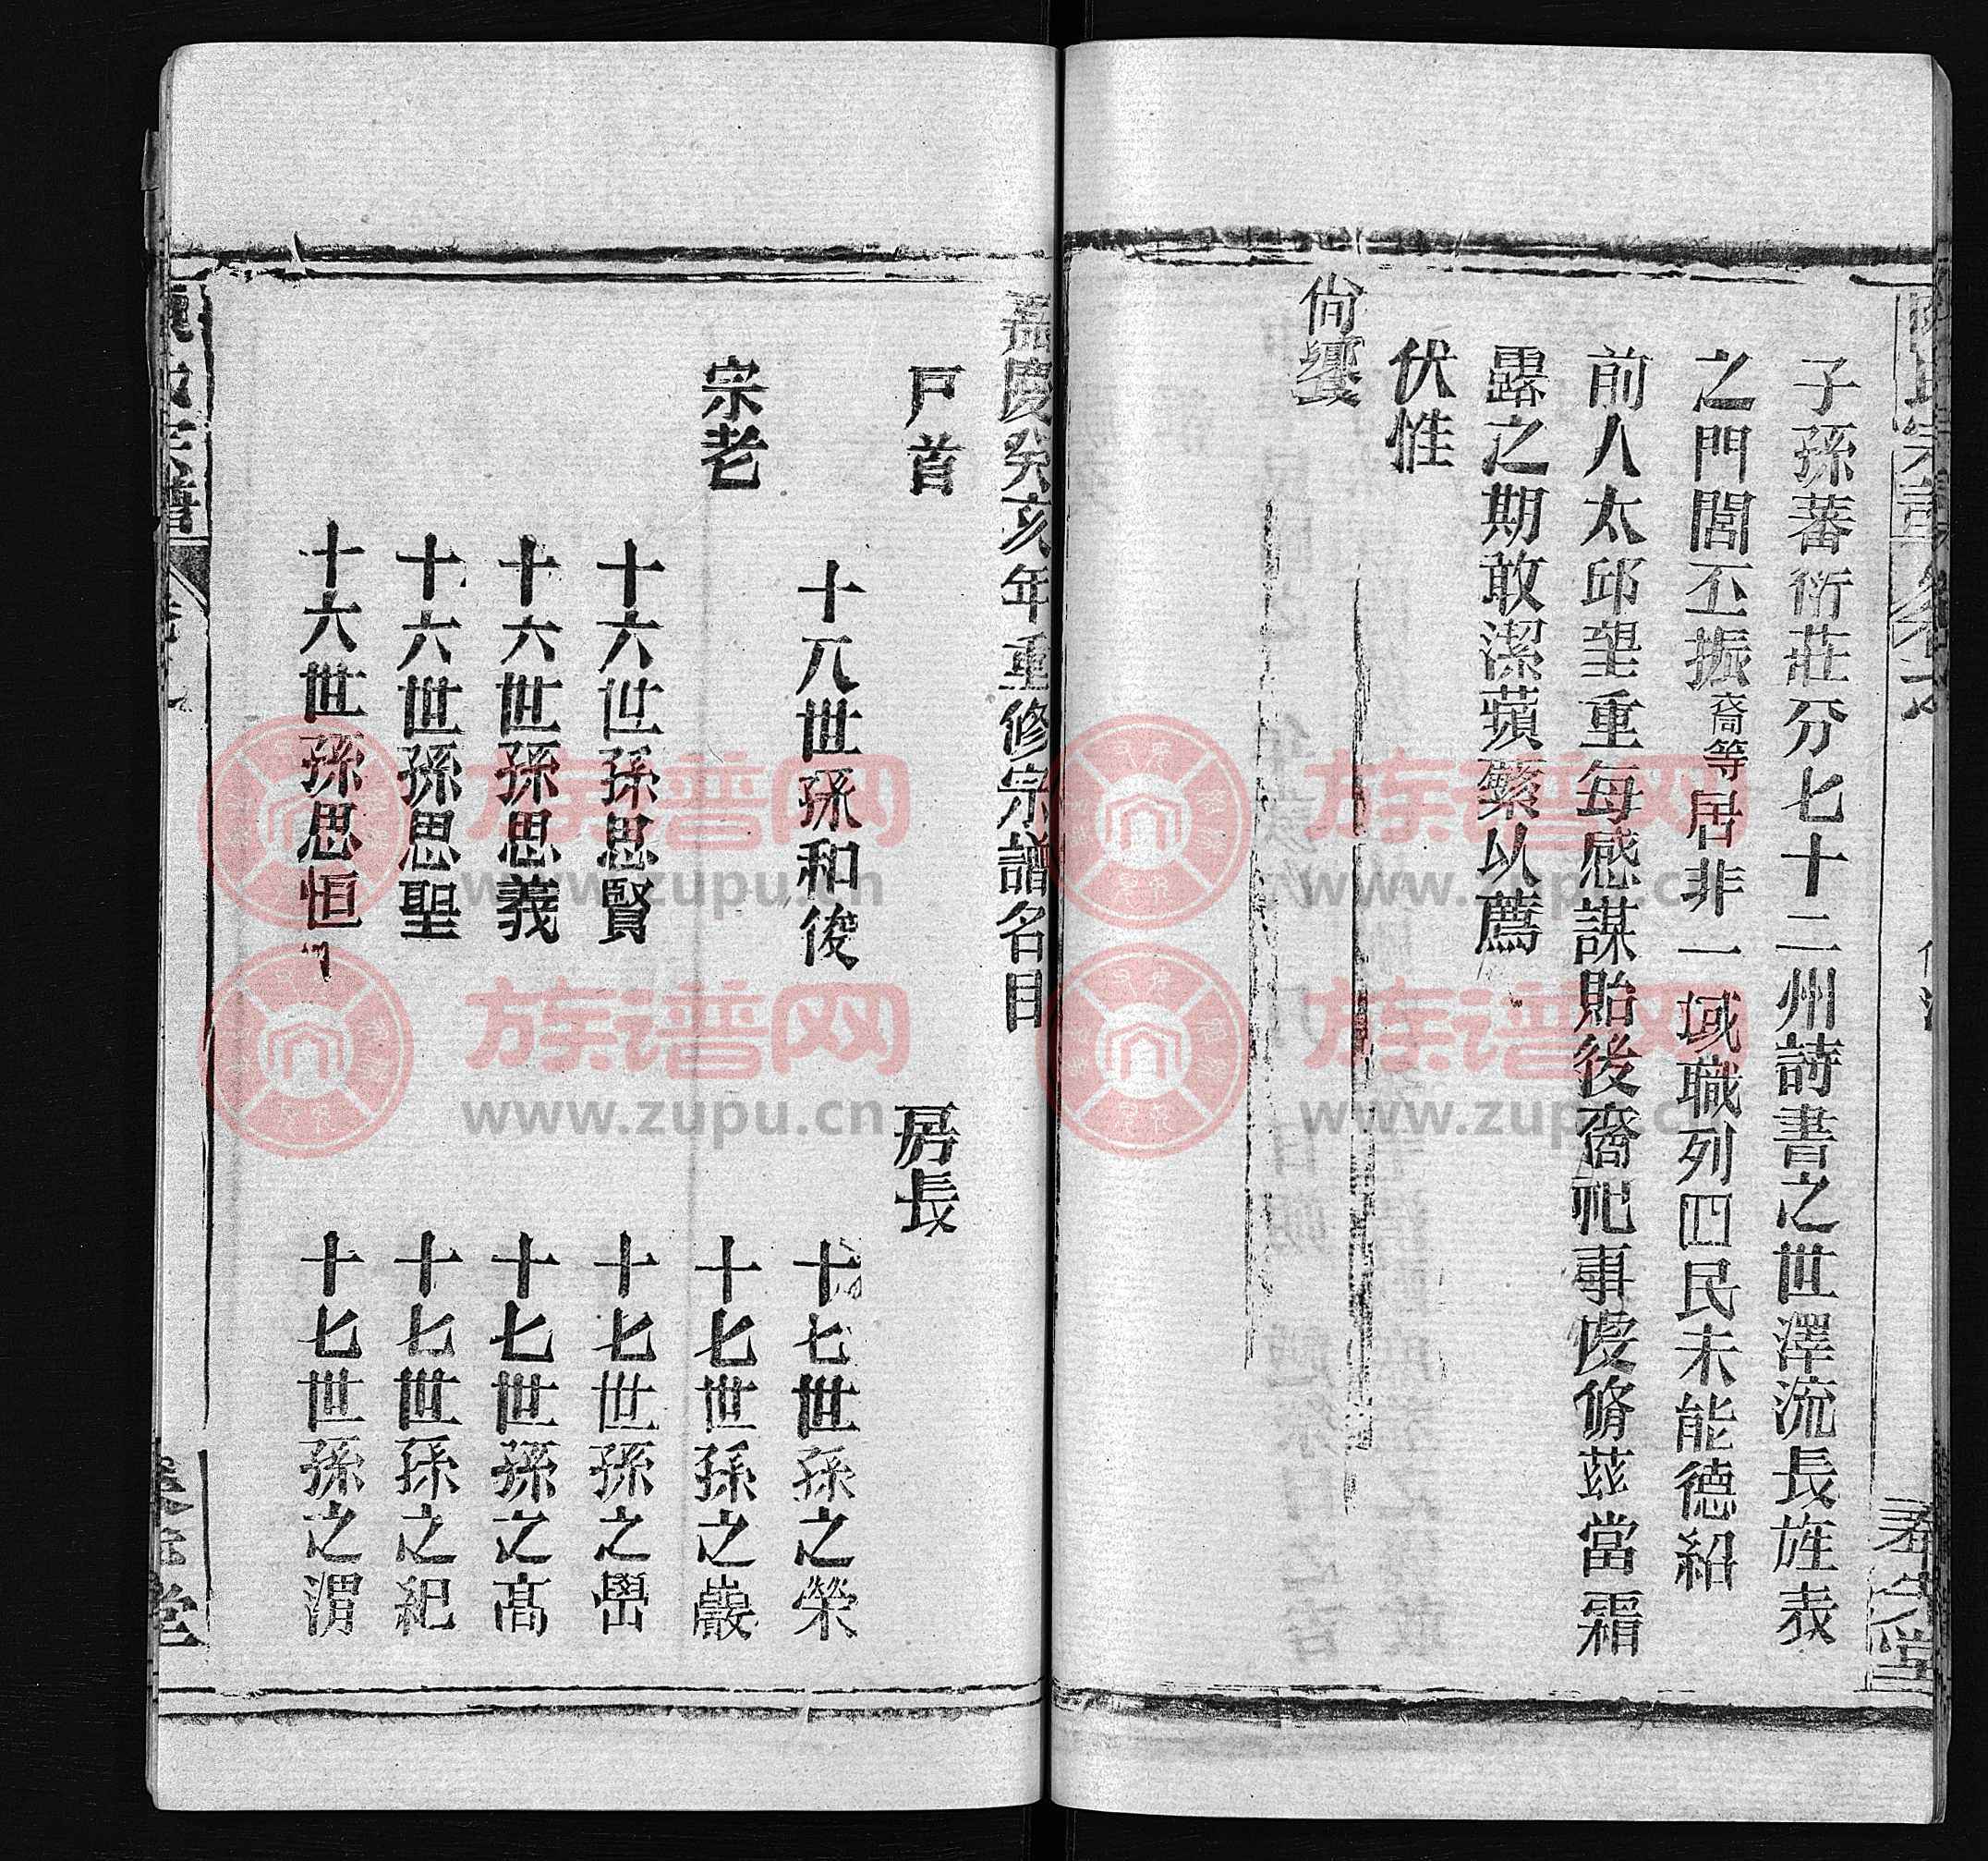 子孫蕃衍莊分七十二州詩書之世澤流長旌表
之門閭丕振裔等居非一域職列四民未能德紹
前人太邱望重每感謀貽後裔祀事虔脩茲當霜
露之期敢潔蘋蘩以薦
伏惟
尙饗
嘉慶癸亥年重修宗譜名目
戶首
房長
十八世孫和俊
十七世孫之榮
宗老
十七世孫之巖
十六世孫思賢
十七世孫之嶨
十六世孫思義
十七世孫之高
十六世孫思聖
十七世孫之紀
十六世孫思恒
十七世孫之渭
族谱网
www.zupu.cn
族谱网
www.zupu.cn
族谱网
www.zupu.cn
族谱网
www.zupu.cn